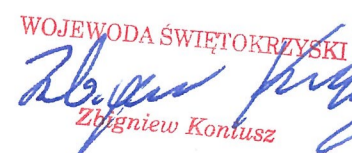 WOJEWODA ŚWIĘTOKRZYSKI
Zbigniew Koniusz